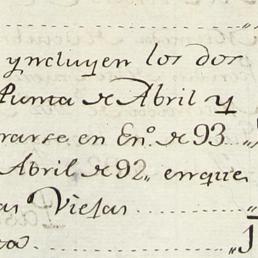 yncluyen los dos
Punta de Abril y
rarse en En.º de 93
Abril de 92,, enque
as Viejas